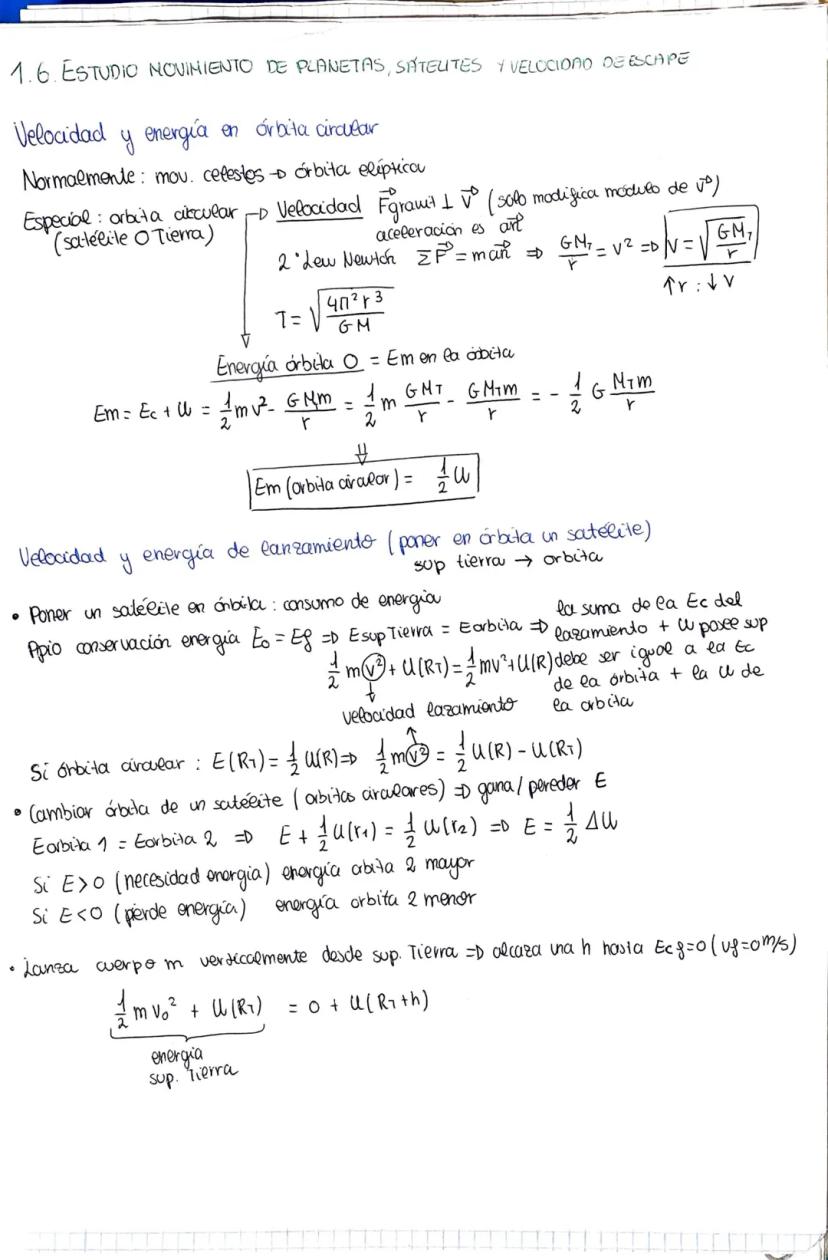 1.6. ESTUDIO MOVIMIENTO DE PLANETAS, SATELITES Y VELOCIDAD DE ESCAPE
Velocidad y energía en órbita circular
Normalmente: mov. celestes → órbita elíptica
Especial: orbita circular → Velocidad F⃗gravit ⊥ v⃗ (solo modifica módulo de v⃗)
(satélite O Tierra) aceleración es an⃗
2ª Lew Newton ΣF⃗ = man⃗ ⇒ GM_T/r = v² ⇒ v = √(GM_T/r)
↑r : ↓v
T = √(4π²r³/GM)
Energía órbita O = Em en la órbita
Em = Ec + U = 1/2 mv² - GMm/r = 1/2 m GM_T/r - GM_Tm/r = - 1/2 G M_Tm/r
⇓
Em (orbita circular) = 1/2 U
Velocidad y energía de lanzamiento (poner en órbita un satélite)
sup tierra → orbita
• Poner un satélite en órbita: consumo de energía
Ppio conservación energía E₀ = Ef ⇒ Esup Tierra = Eorbita ⇒ la suma de la Ec del lazamiento + U posee sup
1/2 m v² + U(R_T) = 1/2 mv² + U(R) debe ser igual a la Ec de la órbita + la U de la orbita
↓
velocidad lazamiento
↑
Si órbita circular : E(R_T) = 1/2 U(R) ⇒ 1/2 m v² = 1/2 U(R) - U(R_T)
• Cambiar órbita de un satélite (orbitas circulares) ⇒ gana/pereder E
Eorbita 1 = Eorbita 2 ⇒ E + 1/2 U(r₁) = 1/2 U(r₂) ⇒ E = 1/2 ΔU
Si E>0 (necesidad energía) energía orbita 2 mayor
Si E<0 (pierde energía) energía orbita 2 menor
• Lanza cuerpo m verticalmente desde sup. Tierra ⇒ alcaza una h hasta Ecf=0 (vf=0 m/s)
1/2 m v₀² + U(R_T) = 0 + U(R_T+h)
energía
sup. Tierra